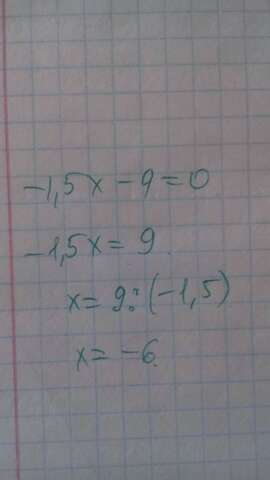 -1,5x - 9 = 0
-1,5x = 9.
x = 9 : (-1,5)
x = -6.